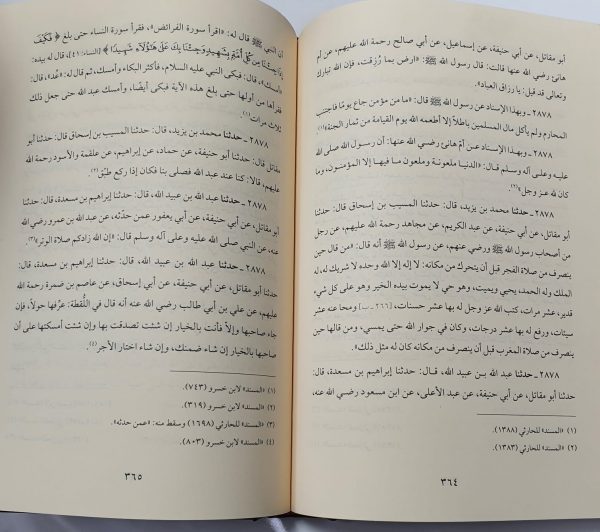 أبو مقاتل، عن أبي حنيفة، عن إسماعيل، عن أبي صالح رحمة الله عليهم، عن أم
هانئ رضي الله عنها قالت: قال رسول الله ﷺ: «ارض بما رُزقت، فإن الله تبارك
وتعالى قد قيل: يا رزاق العباد».
٢٨٧٨ ـ وبهذا الإسناد عن رسول الله ﷺ قال: «ما من مؤمن جاع يومًا فاجتنب
المحارم ولم يأكل مال المسلمين باطلًا إلا أطعمه الله يوم القيامة من ثمار الجنة»(١).
٢٨٧٨ ـ وبهذا الإسناد عن أمّ هانئ رضي الله عنها: أن رسول الله صلى الله
عليه وآله وسلم قال: «الدنيا ملعونة وملعون ما فيها إلا المؤمنون، وما
كان لله عز وجل»(٢).
٢٨٧٨ ـ حدثنا محمد بن يزيد، قال: حدثنا المسيب بن إسحاق قال: حدثنا
أبو مقاتل، عن أبي حنيفة، عن عبد الكريم، عن مجاهد رحمة الله عليهم، عن رجل
من أصحاب رسول الله ﷺ ورضي عنهم، عن رسول الله ﷺ أنه قال: «من قال حين
ينصرف من صلاة الفجر قبل أن يتحرك من مكانه: لا إله إلا الله وحده لا شريك له، له
الملك وله الحمد، يحيي ويميت، وهو حي لا يموت بيده الخير وهو على كل شيء
قدير، عشر مرات، كتب الله عز وجل له بها عشر حسنات، [٢٦٦ ـ ب] ومحا عنه عشر
سيئات، ورفع له بها عشر درجات، وكان في جوار الله حتى يمسي، ومن قالها حين
ينصرف من صلاة المغرب قبل أن ينصرف من مكانه كان له مثل ذلك».
٢٨٧٨ ـ حدثنا عبد الله بن عبيد الله، قال: حدثنا إبراهيم بن مسعدة، قال:
حدثنا أبو مقاتل، عن أبي حنيفة، عن عبد الأعلى، عن ابن مسعود رضي الله عنه،
(١) «المسند» للحارثي (١٣٨٨).
(٢) «المسند» للحارثي (١٣٨٣).
٣٦٤
أن النبي ﷺ قال له: «اقرأ سورة الفرائض»، فقرأ سورة النساء حتى بلغ ﴿فَكَيْفَ
إِذَا جِئْنَا مِن كُلِّ أُمَّةٍ بِشَهِيدٍ وَجِئْنَا بِكَ عَلَىٰ هَٰٓؤُلَآءِ شَهِيدًا﴾ [النساء: ٤١]، قال له بيده:
«أمسك»، قال: فبكى النبي عليه السلام، فأكثر البكاء وأمسك، ثم قال له: «عُد»، قال:
فقرأها من أولها حتى بلغ هذه الآية فبكى أيضًا، وأمسك عبد الله حتى جعل ذلك
ثلاث مرات(١).
٢٨٧٨ ـ حدثنا محمد بن يزيد، قال: حدثنا المسيب بن إسحاق قال: حدثنا أبو
مقاتل قال: حدثنا أبو حنيفة، عن حماد، عن إبراهيم، عن علقمة والأسود رحمة الله
عليهم، قالا: كنا عند عبد الله فصلى بنا فكان إذا ركع طبّق(٢).
٢٨٧٨ ـ حدثنا عبد الله بن عبيد الله، قال: حدثنا إبراهيم بن مسعدة، قال: حدثنا
أبو مقاتل، عن أبي حنيفة، عن أبي يعفور عمن حدّثه، عن عبد الله بن عمرو رضي الله
عنه، عن النبي صلى الله عليه وعلى آله وسلم قال: «إن الله زادكم صلاة الوتر»(٣).
٢٨٧٨ ـ حدثنا عبد الله بن عبيد الله، قال: حدثنا إبراهيم بن مسعدة، قال:
حدثنا أبو مقاتل، عن أبي حنيفة، عن أبي إسحاق، عن عاصم بن ضمرة رحمة الله
عليهم، عن علي بن أبي طالب رضي الله عنه أنه قال في اللُّقطة: عرّفها حولًا، فإن
جاء صاحبها وإلّا فأنت بالخيار إن شئت تصدقت بها وإن شئت أمسكتها على أن
صاحبها بالخيار إن شاء ضمنك، وإن شاء اختار الأجر(٤).
(١) «المسند» لابن خسرو (٧٤٣).
(٢) «المسند» لابن خسرو (٣١٩).
(٣) «المسند» للحارثي (١٦٩٨) وسقط منه: «عمن حدثه».
(٤) «المسند» لابن خسرو (٨٠٣).
٣٦٥